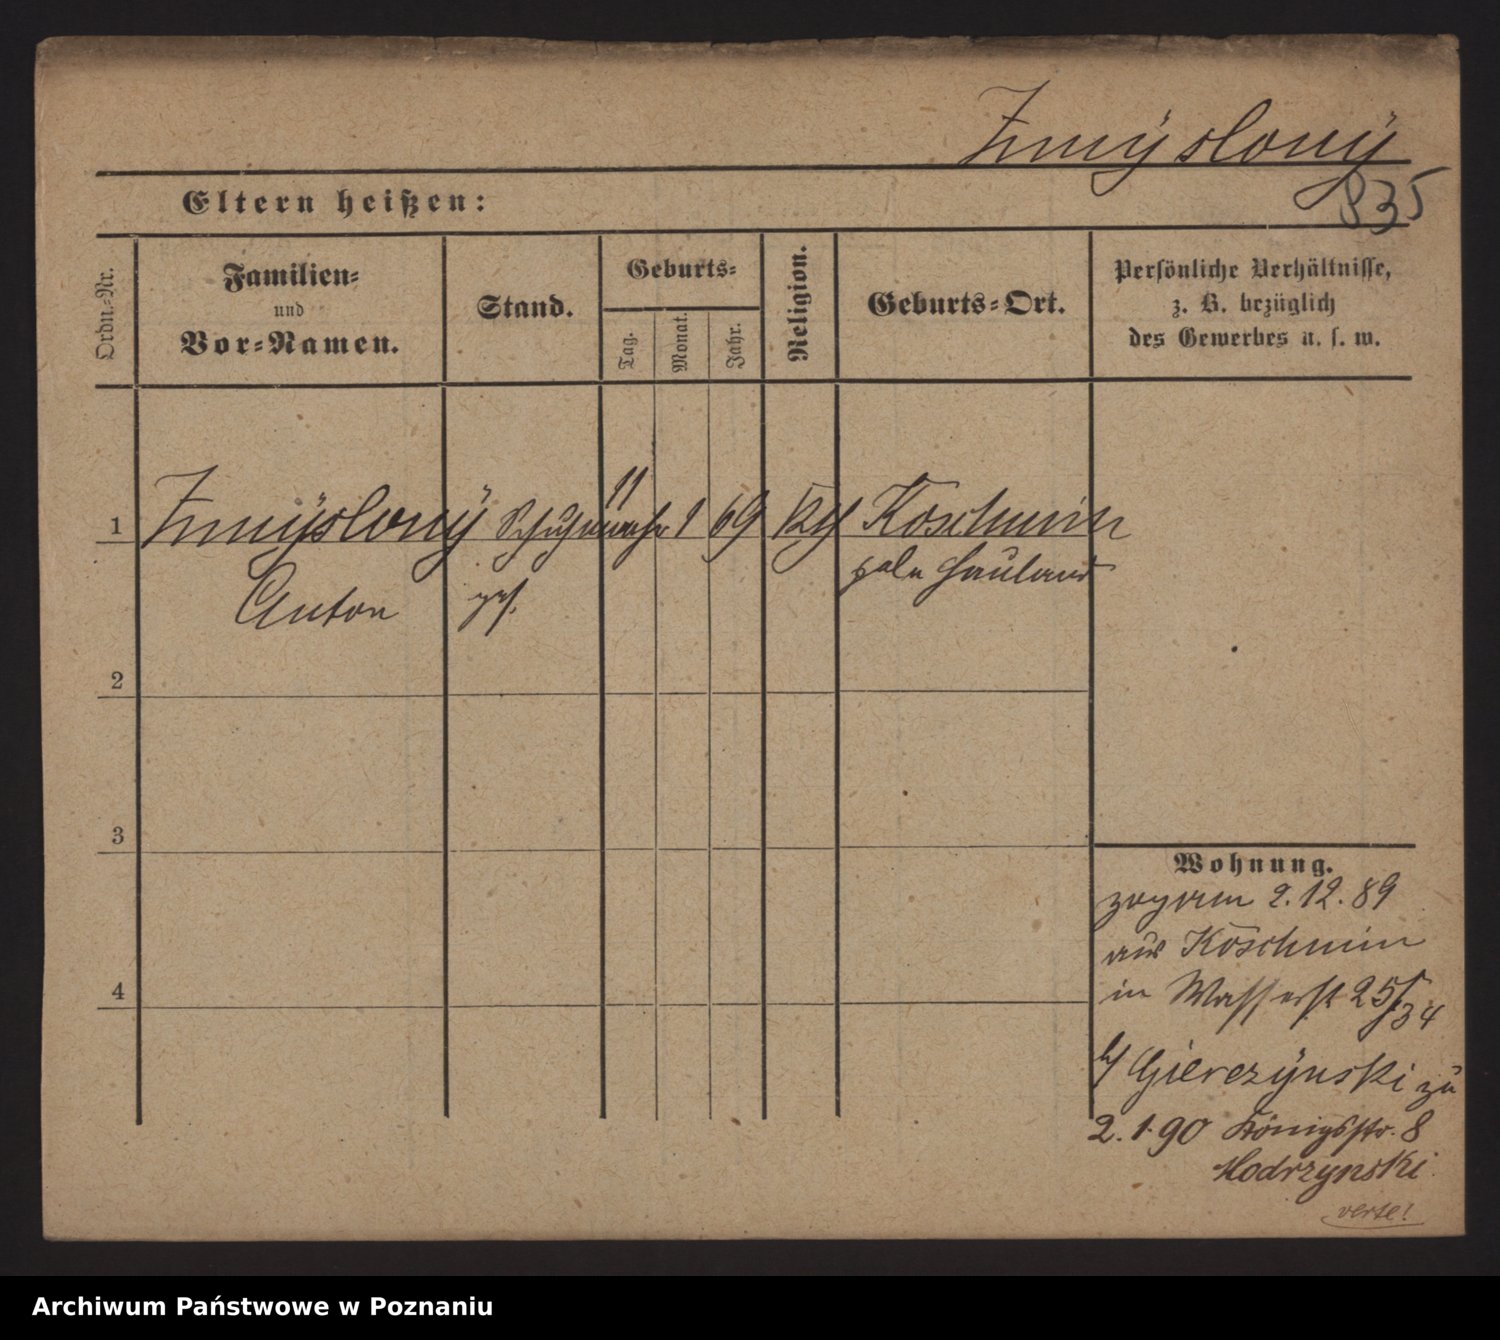 Zmÿslonÿ
835
Eltern heißen:
Ordn.-Nr.
Familien-
und
Vor-Namen.
Stand.
Geburts-
Tag.
Monat.
Jahr.
Religion.
Geburts-Ort.
Persönliche Verhältnisse,
z. B. bezüglich
des Gewerbes u. s. w.
1 Zmÿslonÿ Schuhmacher 11 1 69 Koschmin
Anton ges. Hauland
2
3
4
Wohnung.
zog am 2.12.89
aus Koschmin
in Wasserst 25/34
b/ Gierczÿnski zu
2.1.90 Königsstr. 8
Modrzynski
verte!
Archiwum Państwowe w Poznaniu